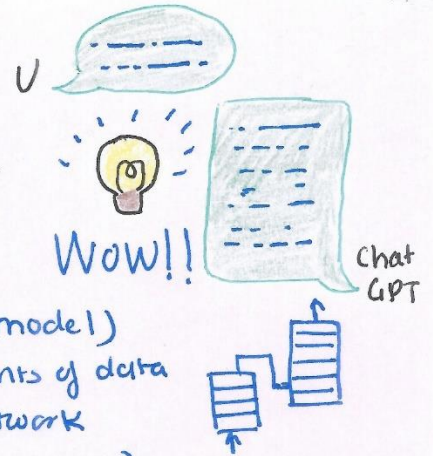 U
WOW!!
Chat
GPT
model)
nts of data
twork